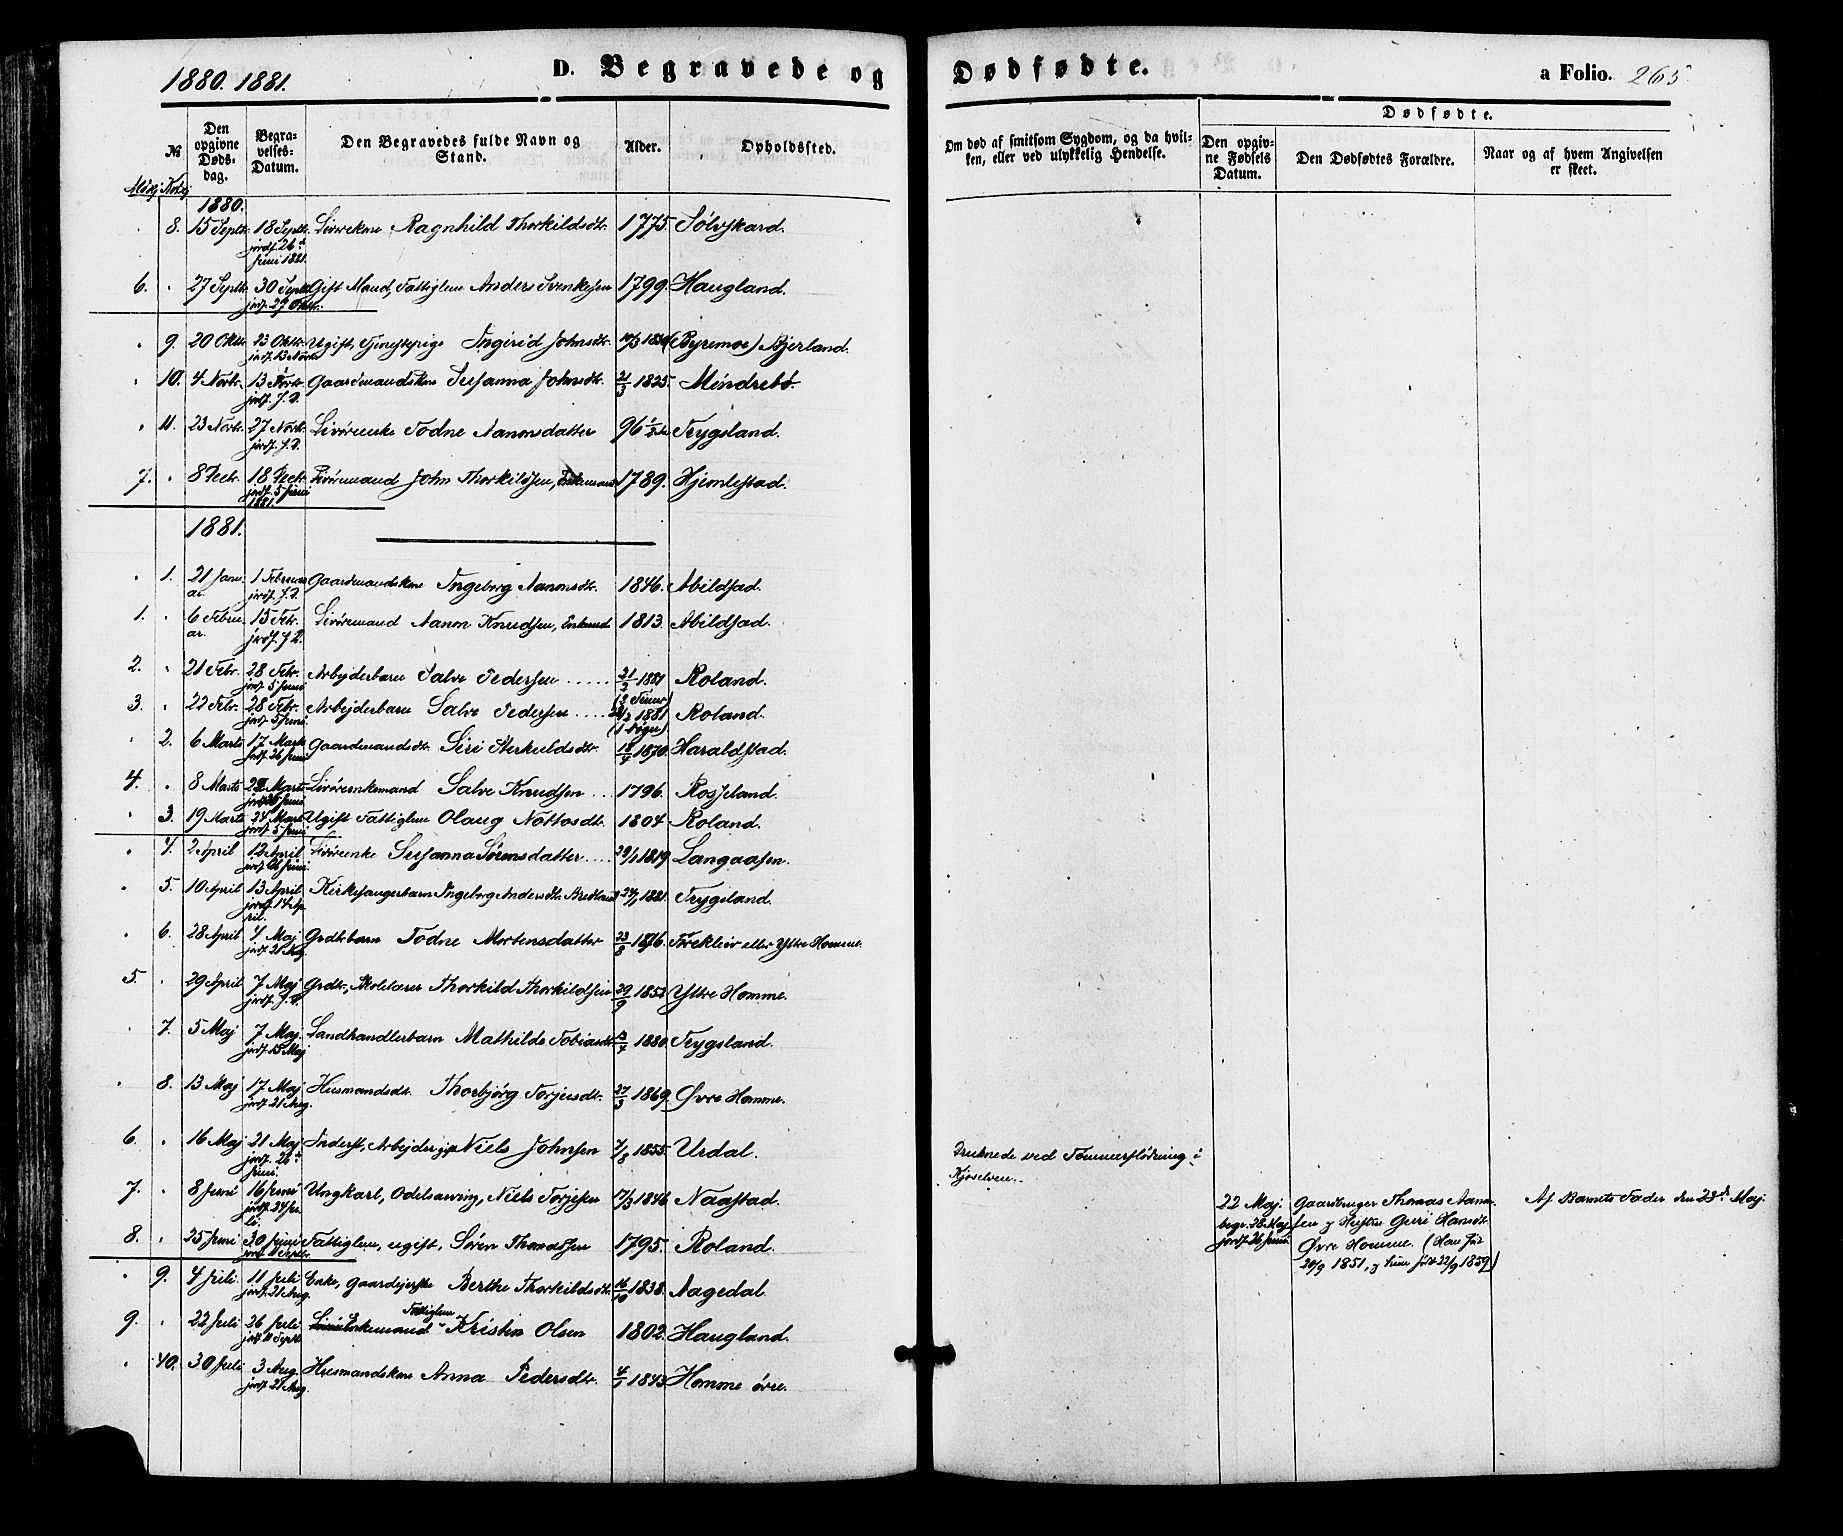 1880. 1881.
D. Begravede og Dødfødte.
a Folio. 265
№
Den opgivne Døds-dag.
Begra-velses-Datum.
Den Begravedes fulde Navn og Stand.
Alder.
Opholdssted.
Om død af smitsom Sygdom, og da hvil-ken, eller ved ulykkelig Hendelse.
Dødfødte.
Den opgiv-ne Fødsels Datum.
Den Dødfødtes Forældre.
Naar og af hvem Angivelsen er skeet.
Mkj Kvkj
1880.
8. 15 Septb. 18 Septb. jordf. 26de Juni 1881. Ragnhild Thorkildsdt. 1775. Sølvskard.
6. 27 Septb. 30 Septb. jordf. 29 Oktbr. Gift Mand, Fattiglem Anders Svenkesen 1799. Haugland.
9. 20 Oktb. 23 Oktb. jordf. 13 Novb. Ugift, Tjenestepige Ingirid Johnsdt. (Byremoe) Bjerland.
10. 4 Novbr. 13 Novbr. jordf. s. D. Gaardmandskone Susanna Johnsdt. 21/3 1825. Mindrebø.
11. 23 Novb. 27 Novb. jordf. s. D. Todne Aanonsdatter 96 1/2 Trygsland.
7. 8 Decbr. 18 Decbr. jordf. 5 Juni 1881. Livøremand John Thorkildsen, Enkemand 1789. Hjemlestad.
1881.
1. 21 Janu ar. 1 Februar jordf. s. D. Gaardmandskone Ingeborg Aanonsdt. 1846. Abildsad.
1. 6 Febru ar. 15 Febr. jordf. s. D. Livøremand Aanon Knudsen, Enkemd. 1813. Abildsad.
2. 21 Febr. 28 Febr. jordf. 5 Juni Arbejderbarn Salve Pedersen ..... 21/2 1881 Roland.
(13 Timer)
3. 22 Febr. 28 Febr. jordf. 5 Juni. Arbejderbarn Salve Pedersen .... 21/2 1881 Roland.
(1 Døgn)
2. 6 Marts 17 Marts jordf. 26 Juni Gaardmandsdt. Siri Aerkuldsdt. 18/4 1870. Haraldstad.
4. 8 Marts Marts Juni Livørenkemand Salve Knudsen ... 1796. Rosseland.
3. 19 Marts 24 Marts jordf. 5 Juni. Ugift Fattiglem Olaug Nottosdt. 1804 Roland.
4. 2 April 12 April jordf. 26 Juni. Livørenke Susanna Sørensdatter .... 29/1 1819. Langaasen.
5. 10 April 13 April jordf. 14 Ap ril. Kirkesangerbarn Ingeborg Andersdt. 1881. Trygsland.
6. 28 April 4 Maj jordf. 21 Aug. Grdbrbarn Todne Mortensdatter 23/8 1876. Førekleiv eller Ytre Homme.
5. 29 April 7 Maj jordf. s. D. Grdbr., Skolelærer Thorkild Thorkildsen 29/9 1853 Ytre Homme.
7. 5 Maj 7 Maj. jordf. 15 Maj Landhandlerbarn Mathilde Tobiasdt. 1880. Trygsland.
8. 13 Maj 17 Maj jordf. 21 Aug. Husmandsdt. Thorbjørg Torjusdt. 27/3 1869. Øvre Homme.
6. 16 Maj 21 Maj jordf. 26de Juni. Inderst, Arbejder, gift Niels Johnsen 7/8 1855. Urdal. Druknede ved Tømmerflødning i Kjøselven.
7. 8 Juni 16 Juni jordf. 24 Ju li. Ungkarl, Odelsarving, Niels Torjesen 17/3 1846 Naastad.
22 Maj. begr. 28 Maj jordf. 26 Juni. Gaardbruger Thomas Aanon sen og Hustru Guri Hansdt. Øvre Homme. (Han født 30/9 1851, og hun født 22/9 1859) Af Barnets Fader den 23de Maj
8. 25 Juni 30 Juni jordf. 11 Septb. Fattiglem, ugift, Søren Thomassen 1795. Roland.
9. 4 Juli. 11 Juli jordf. 21 Aug. Enke, Gaardejerske Berthe Thorkildsdt. 16/10 1838. Aagedal.
9. 22 Juli 26 Juli jordf. 11 Septb. Fattiglem Kristen Olsen 1802. Haugland.
10. 30 Juli 3 Aug. jordf. 21 Aug. Husmandskone Anna Pedersdt. 4/1 1843 Homme øvre.